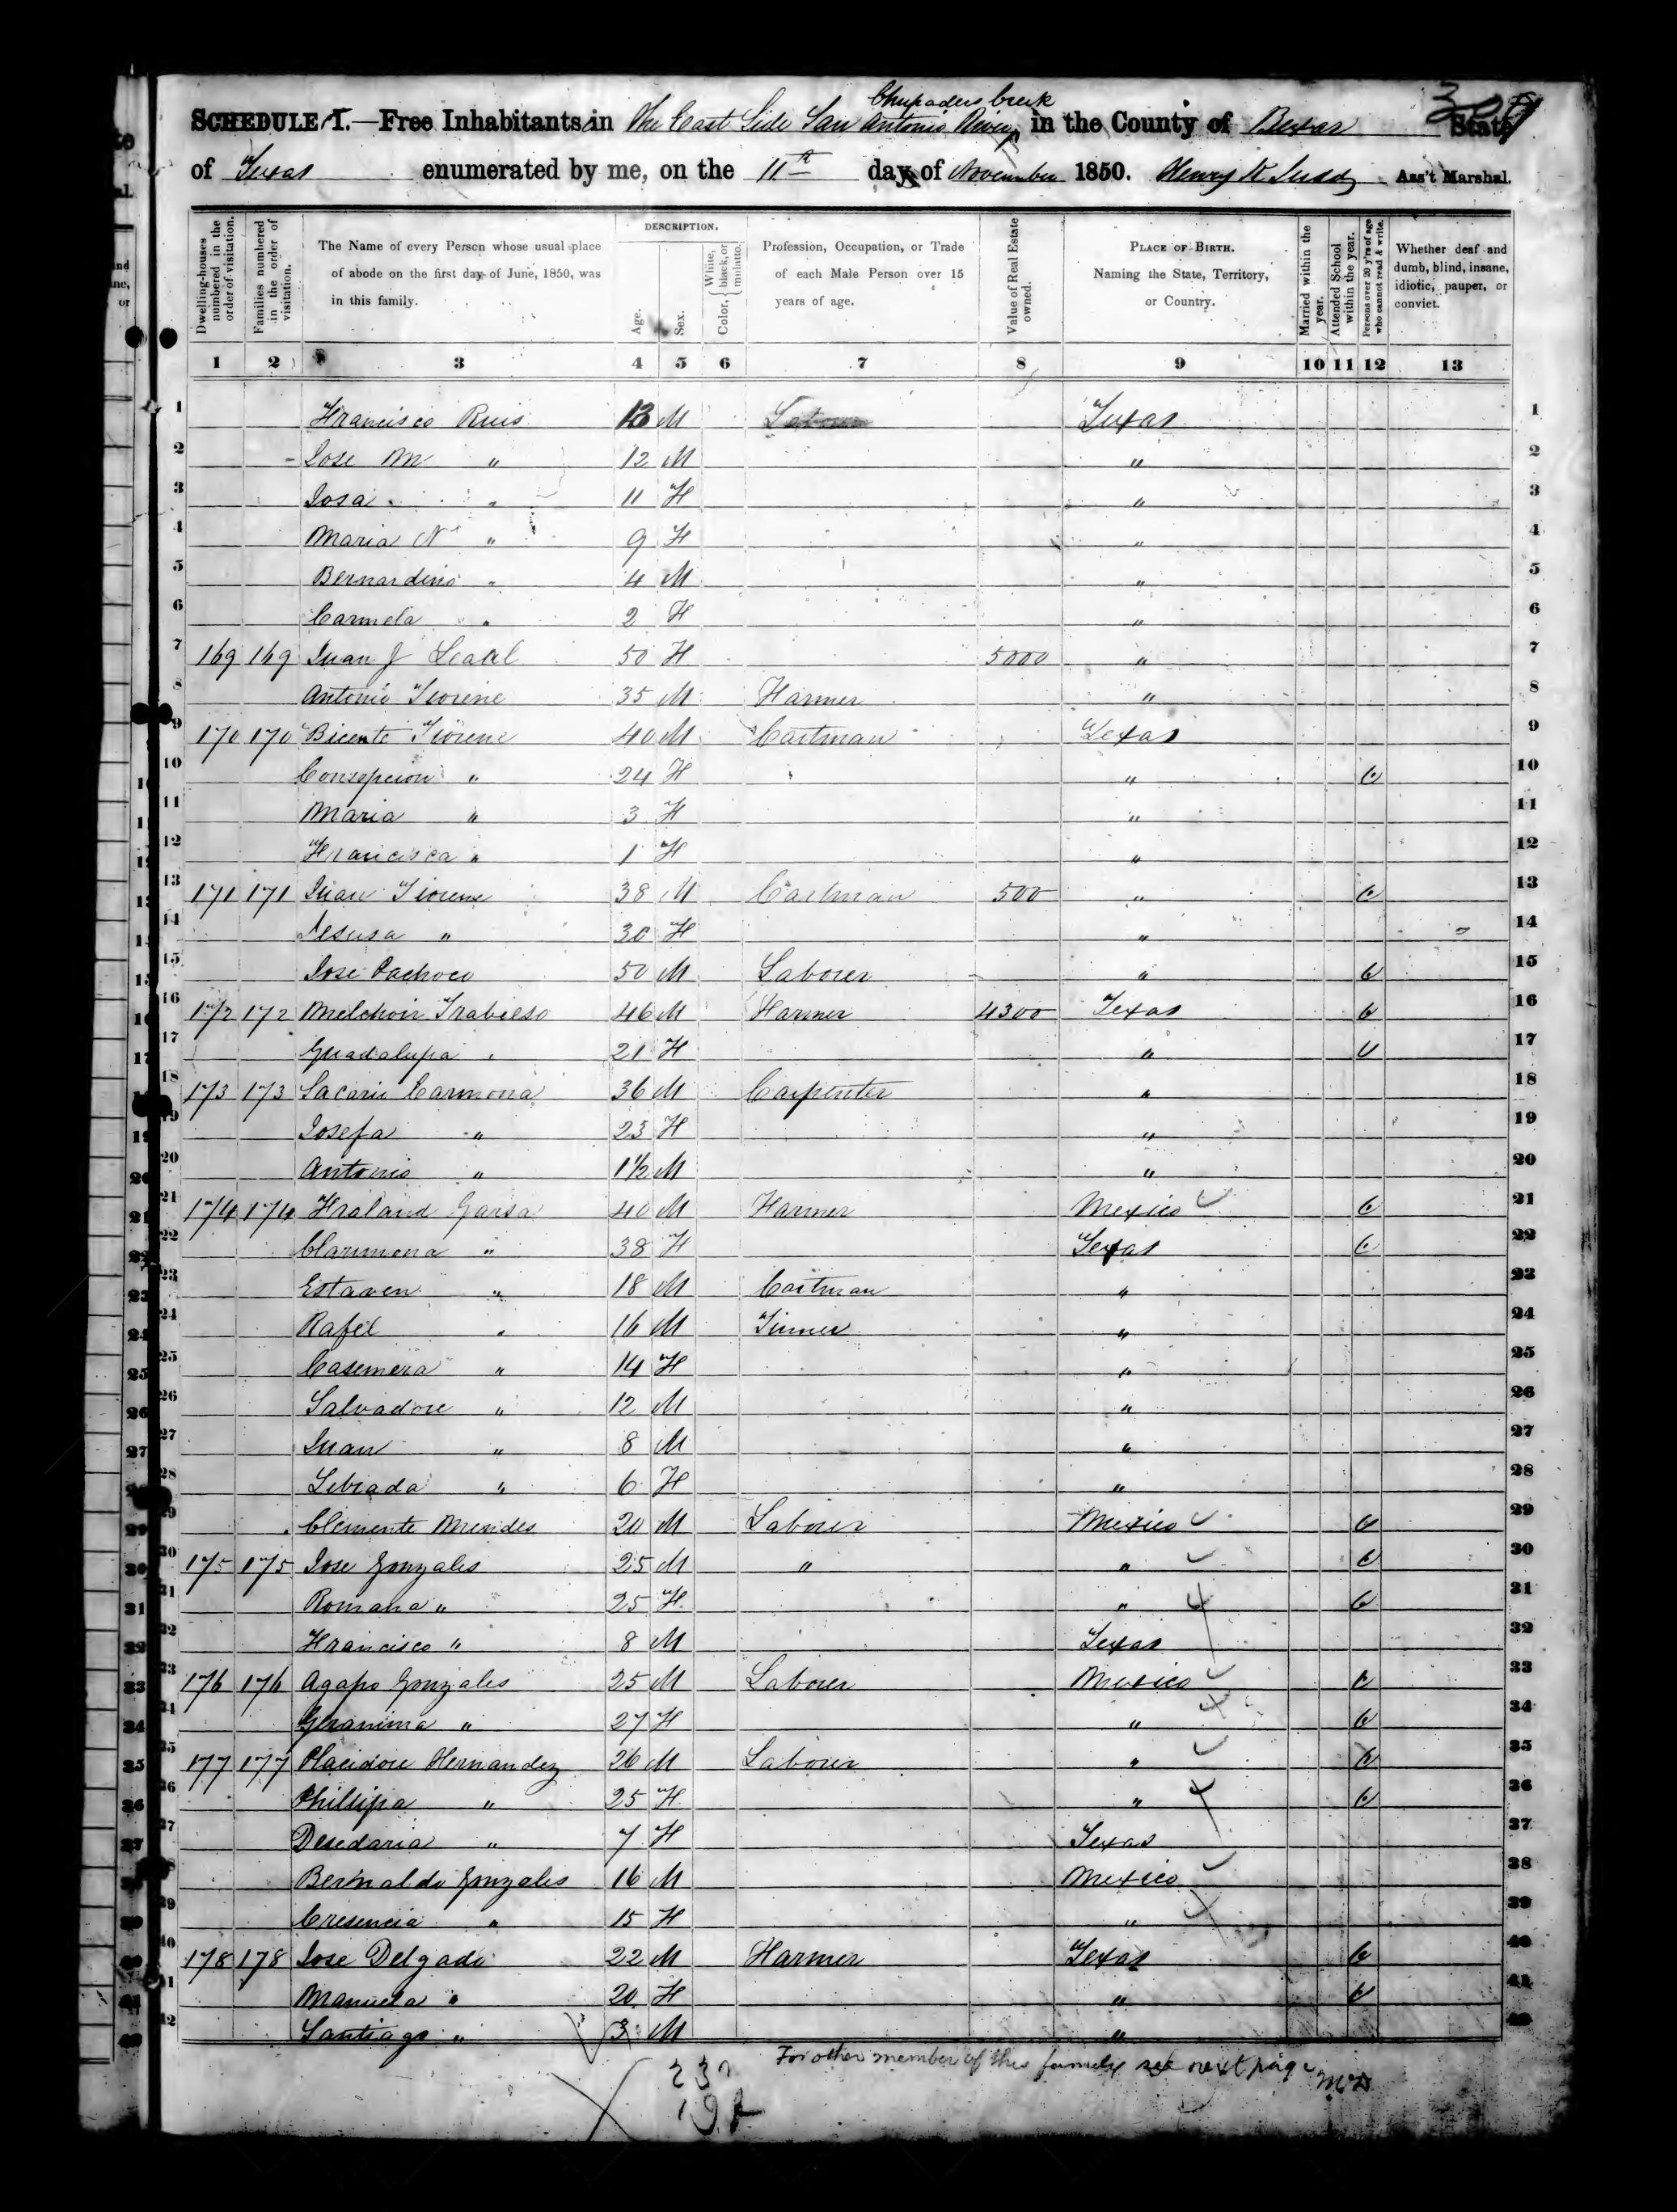 Chupaders Creek
SCHEDULE I.—Free Inhabitants in The East Side San Antonio River, in the County of Bexar State
of Texas enumerated by me, on the 11th day of November 1850. Henry Ass't Marshal.
Dwelling-houses numbered in the order of visitation.
Families numbered in the order of visitation.
The Name of every Person whose usual place of abode on the first day of June, 1850, was in this family.
DESCRIPTION.
Age.
Sex.
Color, { White, black, or mulatto.
Profession, Occupation, or Trade of each Male Person over 15 years of age.
Value of Real Estate owned.
PLACE OF BIRTH. Naming the State, Territory, or Country.
Married within the year.
Attended School within the year.
Persons over 20 y'rs of age who cannot read & write.
Whether deaf and dumb, blind, insane, idiotic, pauper, or convict.
1 2 3 4 5 6 7 8 9 10 11 12 13
1 Francisco Ruis 13 M Texas 1
2 Jose M " 12 M " 2
3 Josa " 11 F " 3
4 Maria N " 9 F " 4
5 Bernardino " 4 M " 5
6 Carmela " 2 F " 6
7 169 169 Juan J Leal 50 F 5000 " 7
8 Antonio 35 M Farmer " 8
9 170 170 Bicente 40 M Cartman Texas 9
10 Consepcion " 24 F " 10
11 Maria " 3 F " 11
12 Francisca " 1 F " 12
13 171 171 Juan 38 M Cartman 500 " 13
14 Jesusa " 30 F " 14
15 Jose Pachoco 50 M Laborer " 15
16 172 172 Melchoir Trabieso 46 M Farmer 4300 Texas 16
17 Guadalupa " 21 F " 17
18 173 173 Sacarie Carmona 36 M Carpenter " 18
19 Josefa " 23 F " 19
20 Antonio " 1½ M " 20
21 174 174 Fraland Garsa 40 M Farmer Mexico 21
22 Clarimona " 38 F Texas 22
23 Estaven " 18 M Cartman " 23
24 Rafel " 16 M Tinner " 24
25 Casemera " 14 F " 25
26 Salvadore " 12 M " 26
27 Juan " 8 M " 27
28 Librada " 6 F " 28
29 Clemente Mendes 20 M Laborer Mexico 29
30 175 175 Jose Gonzales 25 M " " 30
31 Romana " 25 F " 31
32 Francisco " 8 M Texas 32
33 176 176 Agapo Gonzales 25 M Laborer Mexico 33
34 Geranima " 27 F " 34
35 177 177 Placidore Hernandez 26 M Laborer " 35
36 Phillipa " 25 F " 36
37 Desedaria " 7 F Texas 37
38 Bernaldo Gonzales 16 M Mexico 38
39 Cresencia " 15 F " 39
40 178 178 Jose Delgado 22 M Farmer Texas 40
41 Manuela " 20 F " 41
42 Santiago " 3 M " 42
For other member of this family see next page